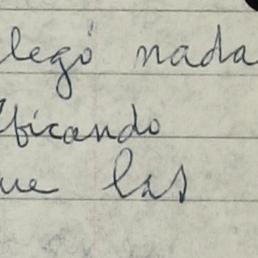 legó nada
ficando
ue las